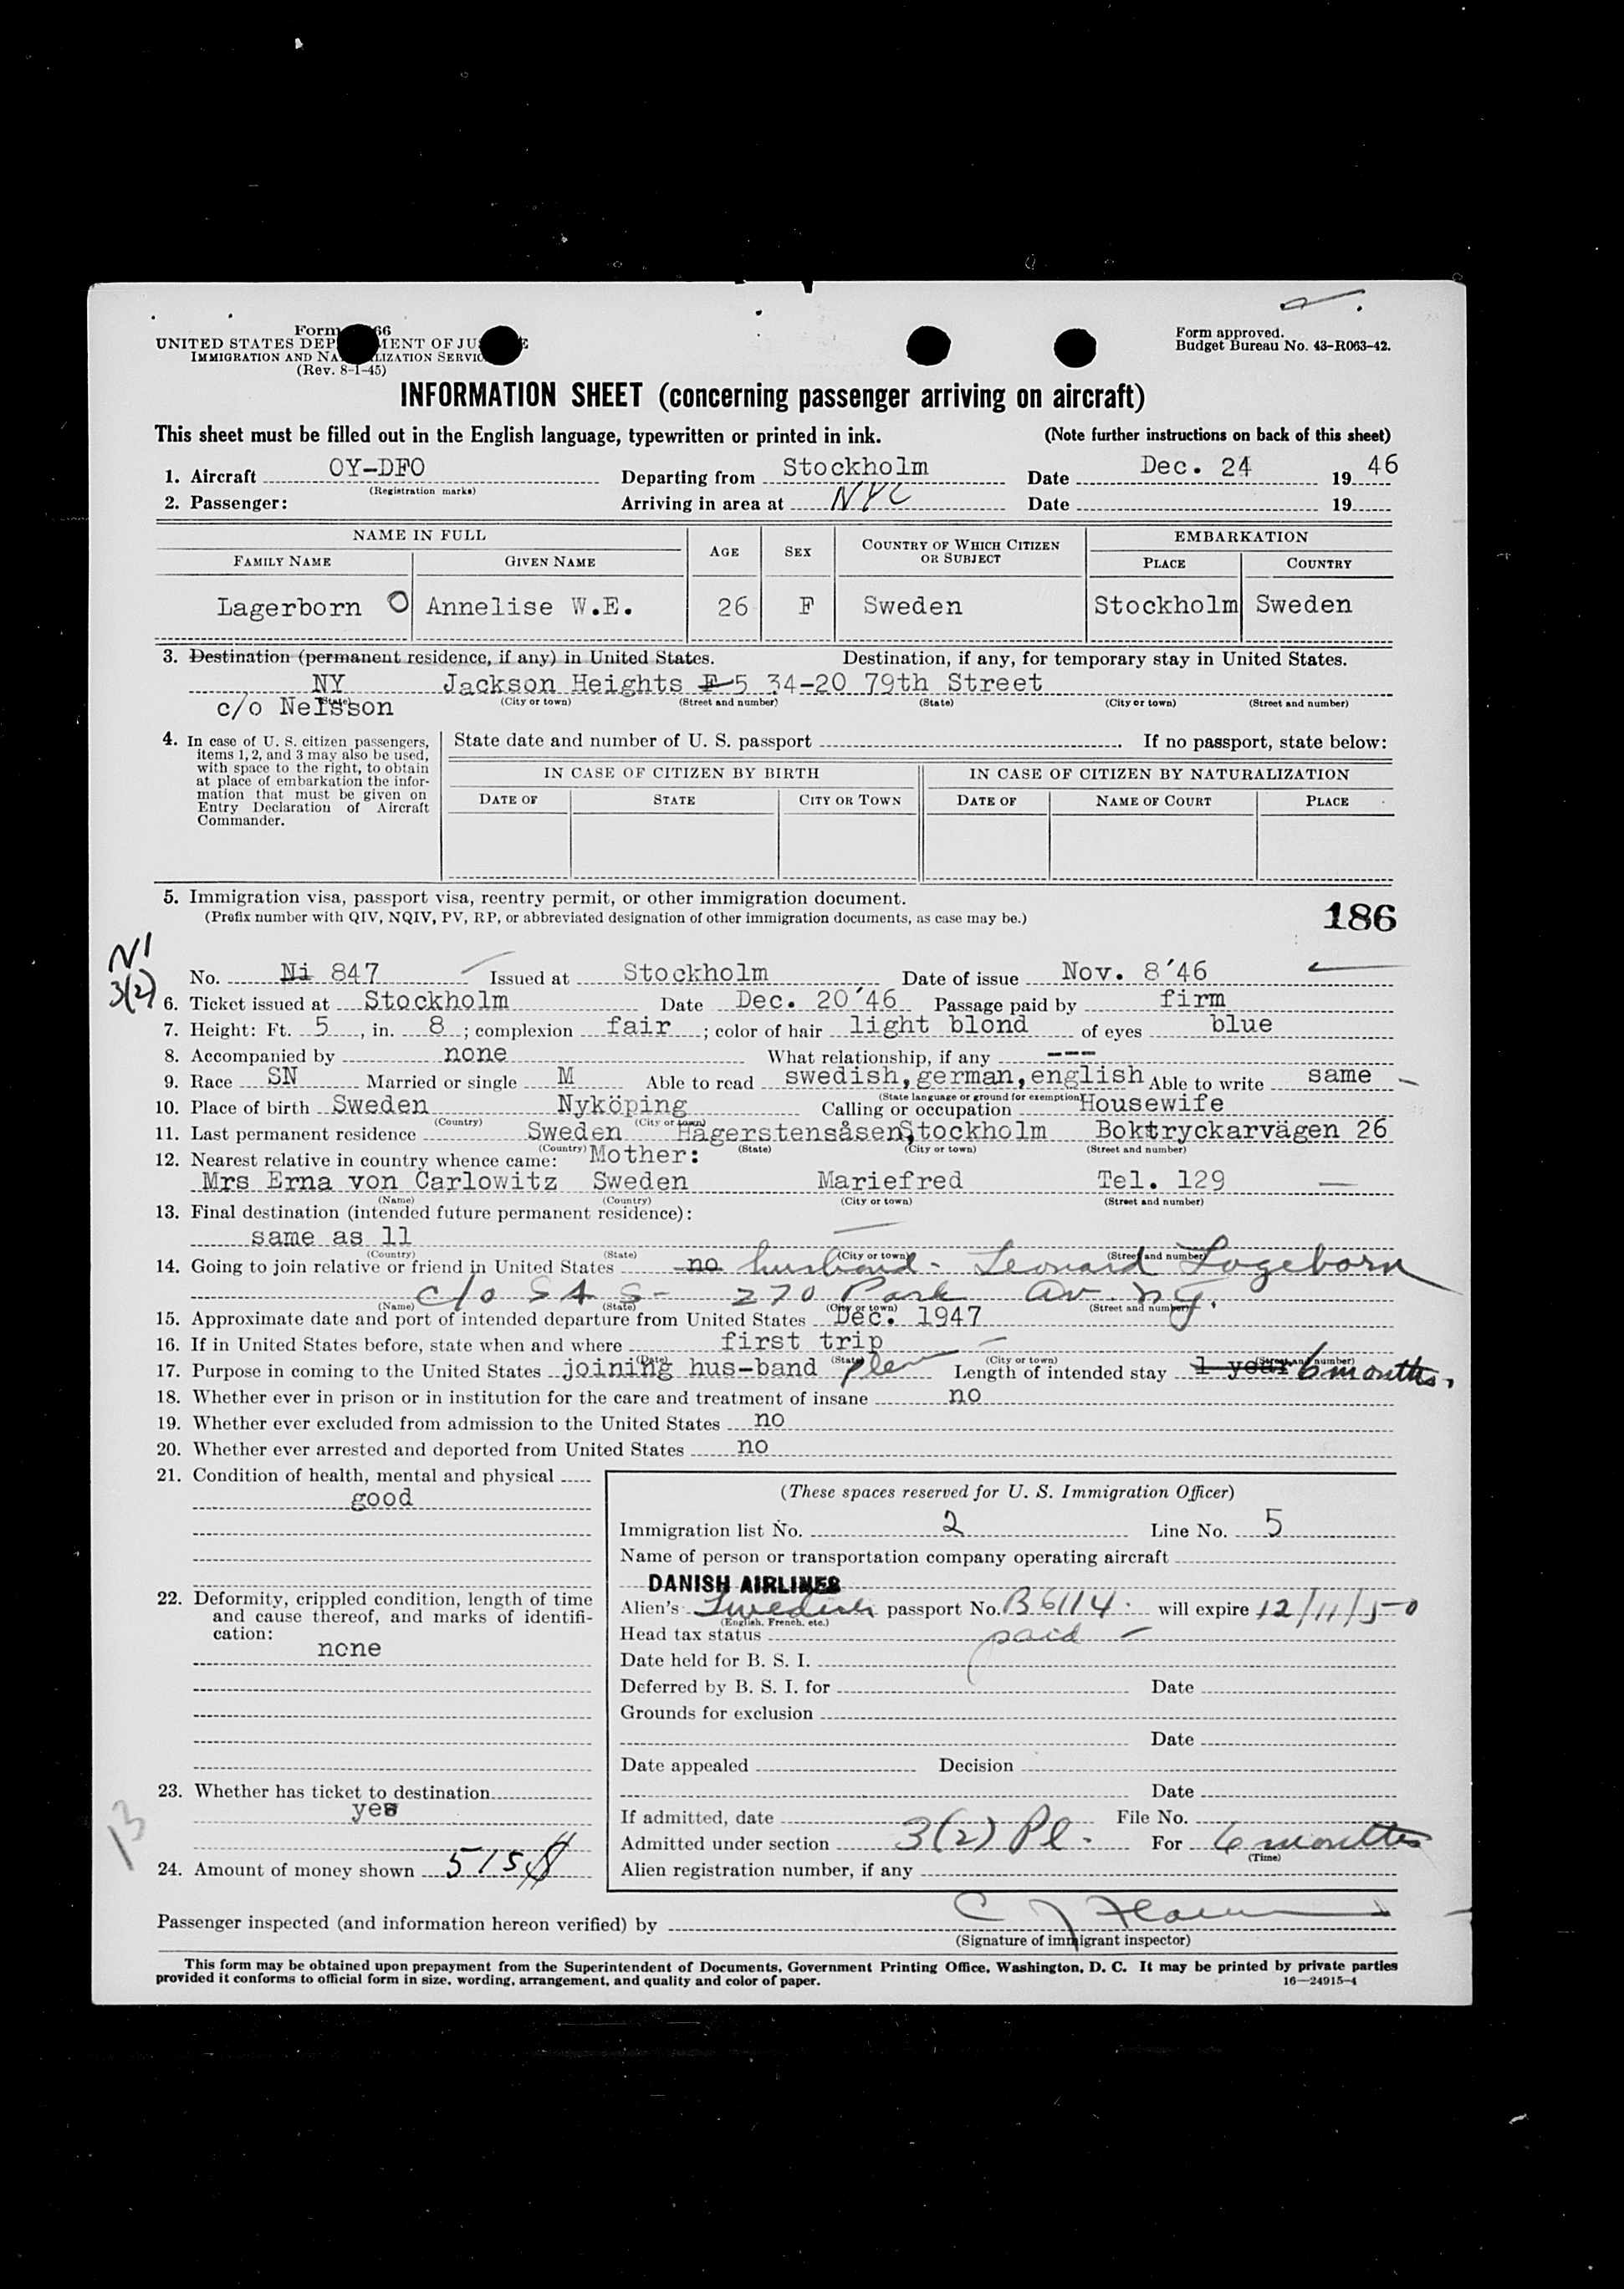 Form 66
UNITED STATES DEP MENT OF JU E
IMMIGRATION AND NA LIZATION SERVIC
(Rev. 8-1-45)
Form approved.
Budget Bureau No. 43-R063-42.
INFORMATION SHEET (concerning passenger arriving on aircraft)
This sheet must be filled out in the English language, typewritten or printed in ink. (Note further instructions on back of this sheet)
1. Aircraft OY-DFO Departing from Stockholm Date Dec. 24 19 46
(Registration marks)
2. Passenger: Arriving in area at NYC Date 19
NAME IN FULL AGE SEX COUNTRY OF WHICH CITIZEN OR SUBJECT EMBARKATION
FAMILY NAME GIVEN NAME PLACE COUNTRY
Lagerborn O Annelise W.E. 26 F Sweden Stockholm Sweden
3. Destination (permanent residence, if any) in United States. Destination, if any, for temporary stay in United States.
NY Jackson Heights F 5 34-20 79th Street
(State) (City or town) (Street and number) (State) (City or town) (Street and number)
c/o Nelsson
4. In case of U. S. citizen passengers,
items 1, 2, and 3 may also be used,
with space to the right, to obtain
at place of embarkation the infor-
mation that must be given on
Entry Declaration of Aircraft
Commander.
State date and number of U. S. passport . If no passport, state below:
IN CASE OF CITIZEN BY BIRTH IN CASE OF CITIZEN BY NATURALIZATION
DATE OF STATE CITY OR TOWN DATE OF NAME OF COURT PLACE
5. Immigration visa, passport visa, reentry permit, or other immigration document.
(Prefix number with QIV, NQIV, PV, RP, or abbreviated designation of other immigration documents, as case may be.)
186
NI
3(2)
No. Ni 847 Issued at Stockholm Date of issue Nov. 8'46
6. Ticket issued at Stockholm Date Dec. 20'46 Passage paid by firm
7. Height: Ft. 5, in. 8; complexion fair; color of hair light blond of eyes blue
8. Accompanied by none What relationship, if any ---
9. Race SN Married or single M Able to read swedish, german, english Able to write same
(State language or ground for exemption)
10. Place of birth Sweden Nyköping Calling or occupation Housewife
(Country) (City or town)
11. Last permanent residence Sweden Hägerstensåsen, Stockholm Boktryckarvägen 26
(Country) (State) (City or town) (Street and number)
12. Nearest relative in country whence came: Mother:
Mrs Erna von Carlowitz Sweden Mariefred Tel. 129
(Name) (Country) (City or town) (Street and number)
13. Final destination (intended future permanent residence):
same as 11
(Country) (State) (City or town) (Street and number)
14. Going to join relative or friend in United States no husband - Leonard Lageborn
c/o SAS - 270 Park Av. NY.
(Name) (State) (City or town) (Street and number)
15. Approximate date and port of intended departure from United States Dec. 1947
16. If in United States before, state when and where first trip
(Date) (State) (City or town) (Street and number)
17. Purpose in coming to the United States joining hus-band Length of intended stay 1 year 6 months.
18. Whether ever in prison or in institution for the care and treatment of insane no
19. Whether ever excluded from admission to the United States no
20. Whether ever arrested and deported from United States no
21. Condition of health, mental and physical
good
22. Deformity, crippled condition, length of time
and cause thereof, and marks of identifi-
cation:
none
23. Whether has ticket to destination
yes
13
24. Amount of money shown 515 $
(These spaces reserved for U. S. Immigration Officer)
Immigration list No. 2 Line No. 5
Name of person or transportation company operating aircraft
DANISH AIRLINES
Alien's Swedish passport No. B6114. will expire 12/11/50
(English, French, etc.)
Head tax status paid
Date held for B. S. I.
Deferred by B. S. I. for Date
Grounds for exclusion
Date
Date appealed Decision
Date
If admitted, date File No.
Admitted under section 3(2) Pl. For 6 months
(Time)
Alien registration number, if any
Passenger inspected (and information hereon verified) by C J
(Signature of immigrant inspector)
This form may be obtained upon prepayment from the Superintendent of Documents, Government Printing Office, Washington, D. C. It may be printed by private parties
provided it conforms to official form in size, wording, arrangement, and quality and color of paper. 16—24915-4